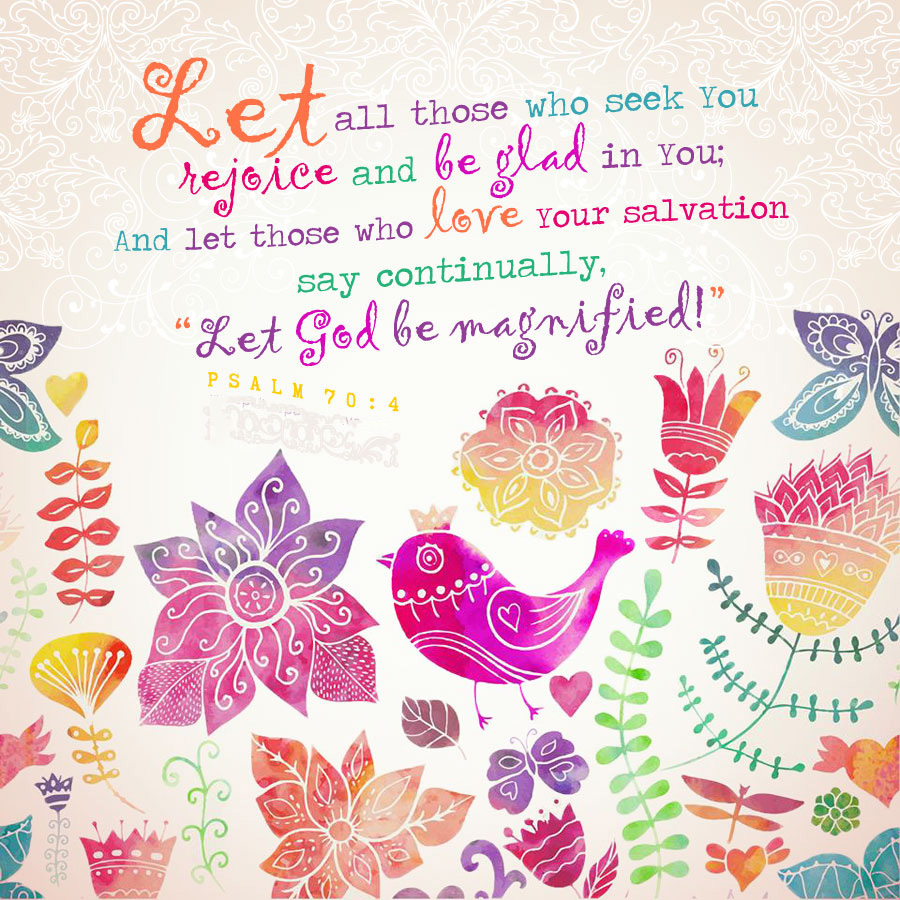 Let all those who seek You
rejoice and be glad in You;
And let those who love Your salvation
say continually,
“Let God be magnified!”
PSALM 70:4